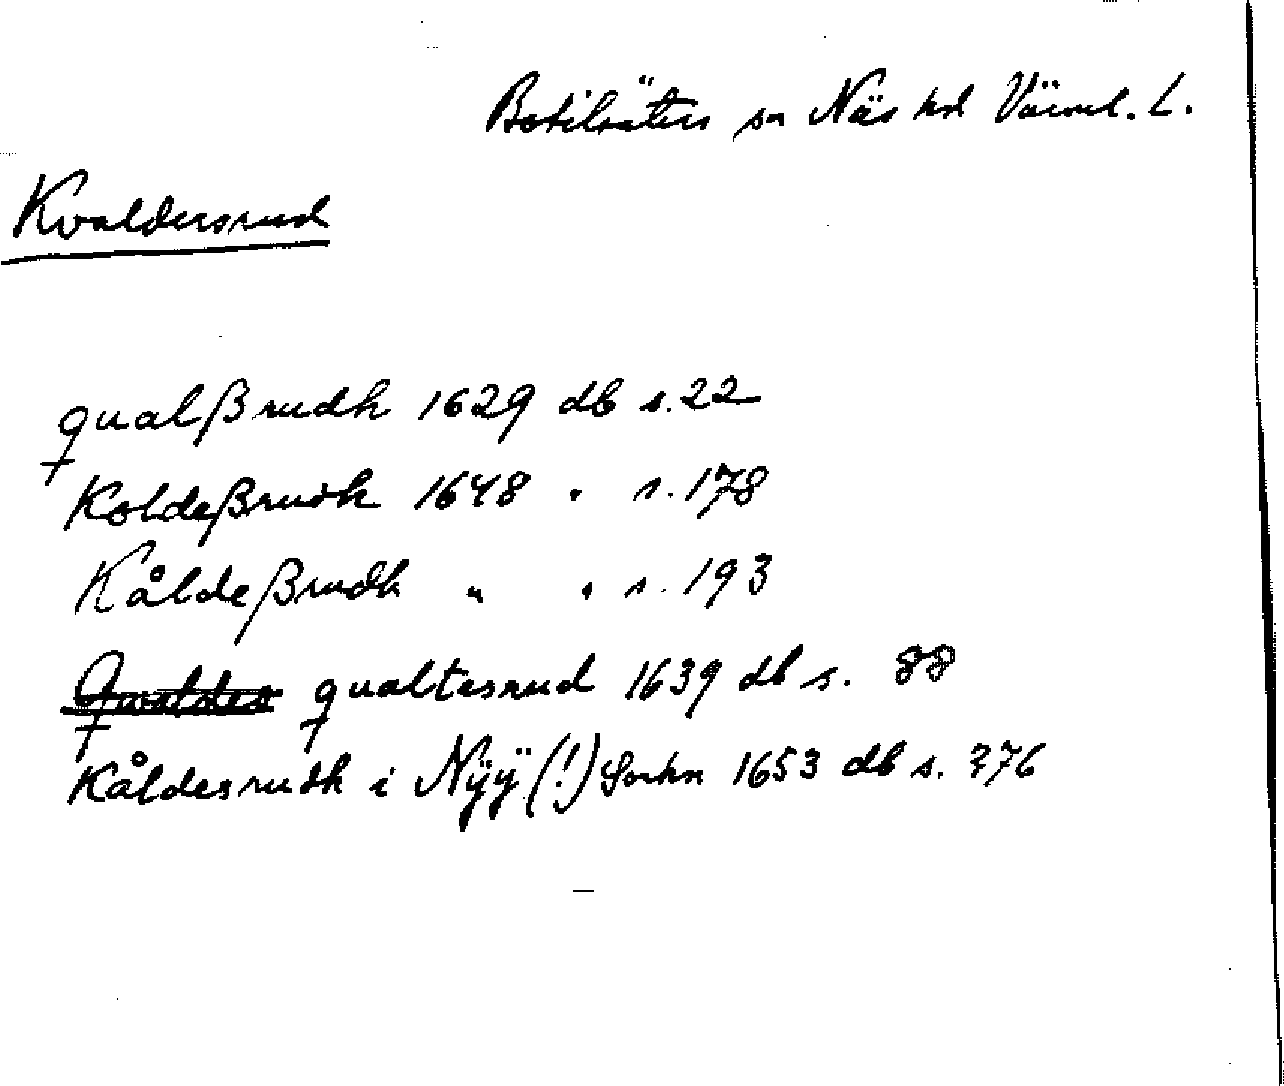 Botilsäters sn Näs hd Värml. L.
Kvaldersrud
qualßrudh 1629 db s. 22
Koldeßrudh 1648 " s. 178
Kåldeßrudh " " s. 193
~~Qwaldes~~ qualtesrud 1639 db s. 88
Kåldesrudh i Nÿÿ (!) Sochn 1653 db s. 376